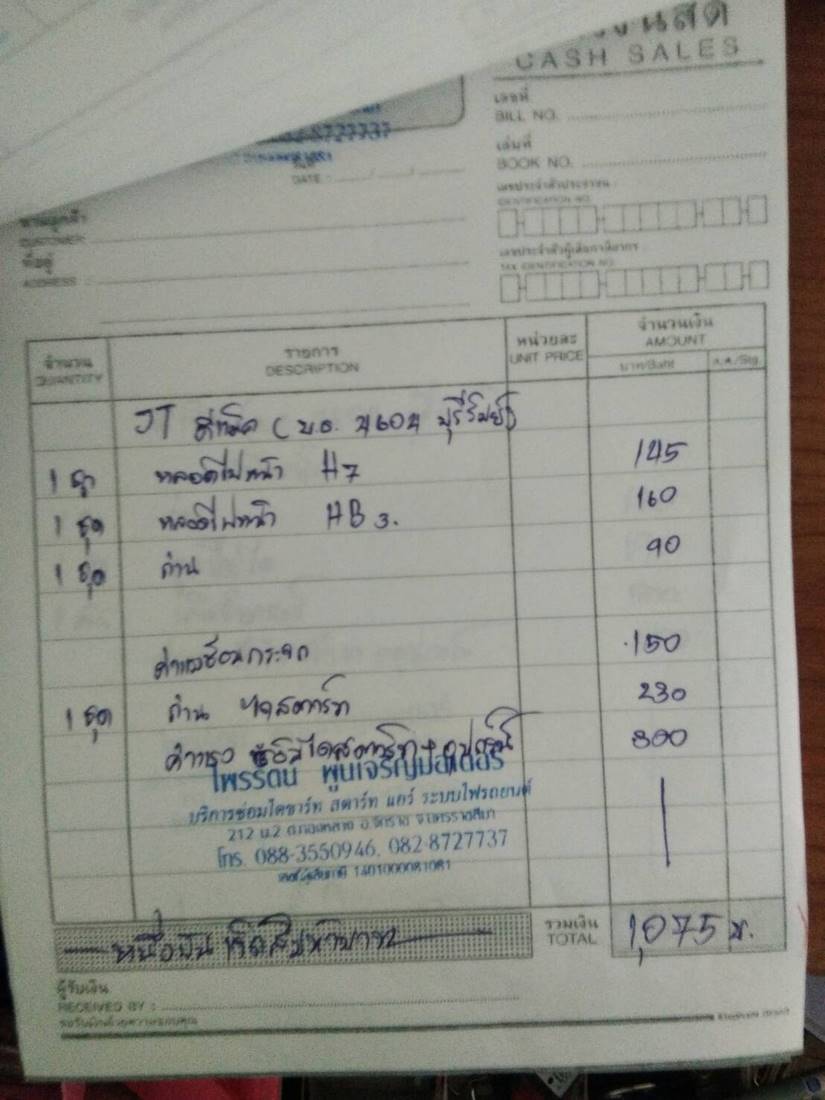 CASH SALES
เลขที่
BILL NO.
8727737
เล่มที่
BOOK NO.
DATE : / /
เลขประจำตัวประชาชน
IDENTIFICATION NO.
CUSTOMER
เลขประจำตัวผู้เสียภาษีอากร
TAX IDENTIFICATION NO.
ที่อยู่
ADDRESS :
จำนวน รายการ หน่วยละ จำนวนเงิน
QUANTITY DESCRIPTION UNIT PRICE AMOUNT
บาท/Baht ส.ต./Stg.
JT (บ.ธ. บุรีรัมย์)
1 หลอดไฟหน้า H7 145
1 ชุด หลอดไฟหน้า HB3. 160
1 ชุด ถ่าน 90
ค่าแรงซ่อมกระจก 150
1 ชุด ถ่าน ไดสตาร์ท 230
ค่าแรง ไดสตาร์ท + อุปกรณ์ 300
ไพรรัตน์ พูนเจริญมอเตอร์
บริการซ่อมไดชาร์ท สตาร์ท แอร์ ระบบไฟรถยนต์
212 ม.2 อ.จักราช จ.นครราชสีมา
โทร. 088-3550946, 082-8727737
หนึ่งพันเจ็ดสิบห้าบาท
รวมเงิน
TOTAL 1,075 บ.
ผู้รับเงิน
RECEIVED BY :